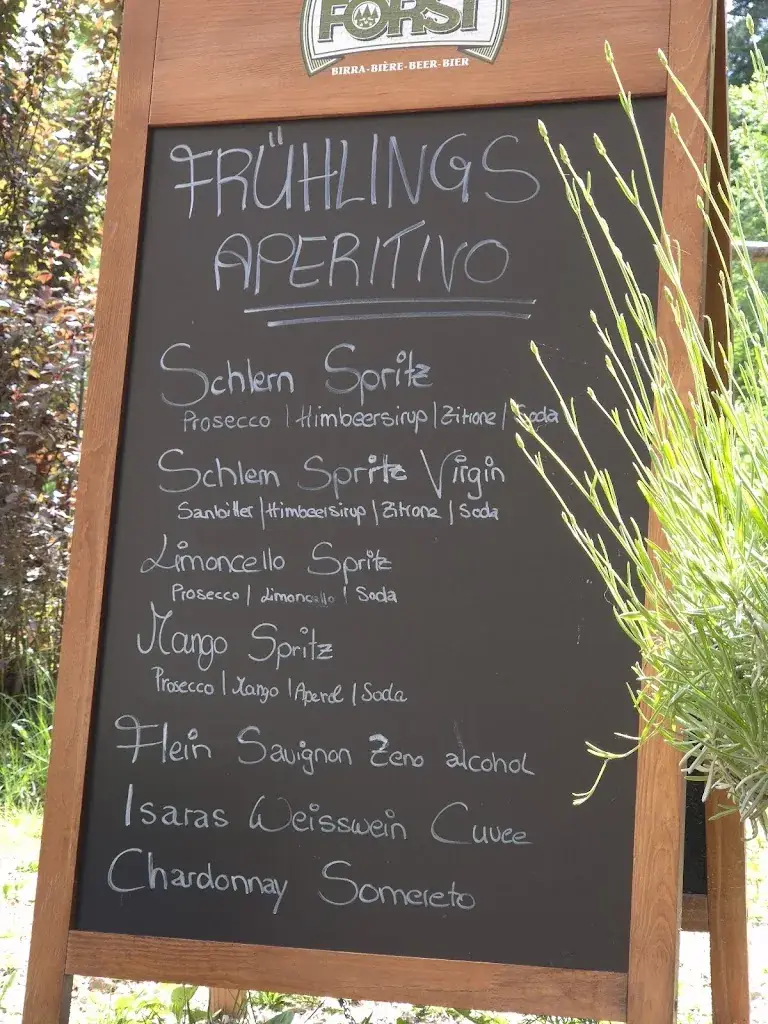 FORST
BIRRA-BIÈRE-BEER-BIER
FRÜHLINGS
APERITIVO
Schlern Spritz
Prosecco | Himbeersirup | Zitrone | Soda
Schlern Spritz Virgin
Sanbitter | Himbeersirup | Zitrone | Soda
Limoncello Spritz
Prosecco | Limoncello | Soda
Mango Spritz
Prosecco | Mango | Aperol | Soda
Flein Sauvignon Zero alcohol
Isaras Weisswein Cuvee
Chardonnay Somereto